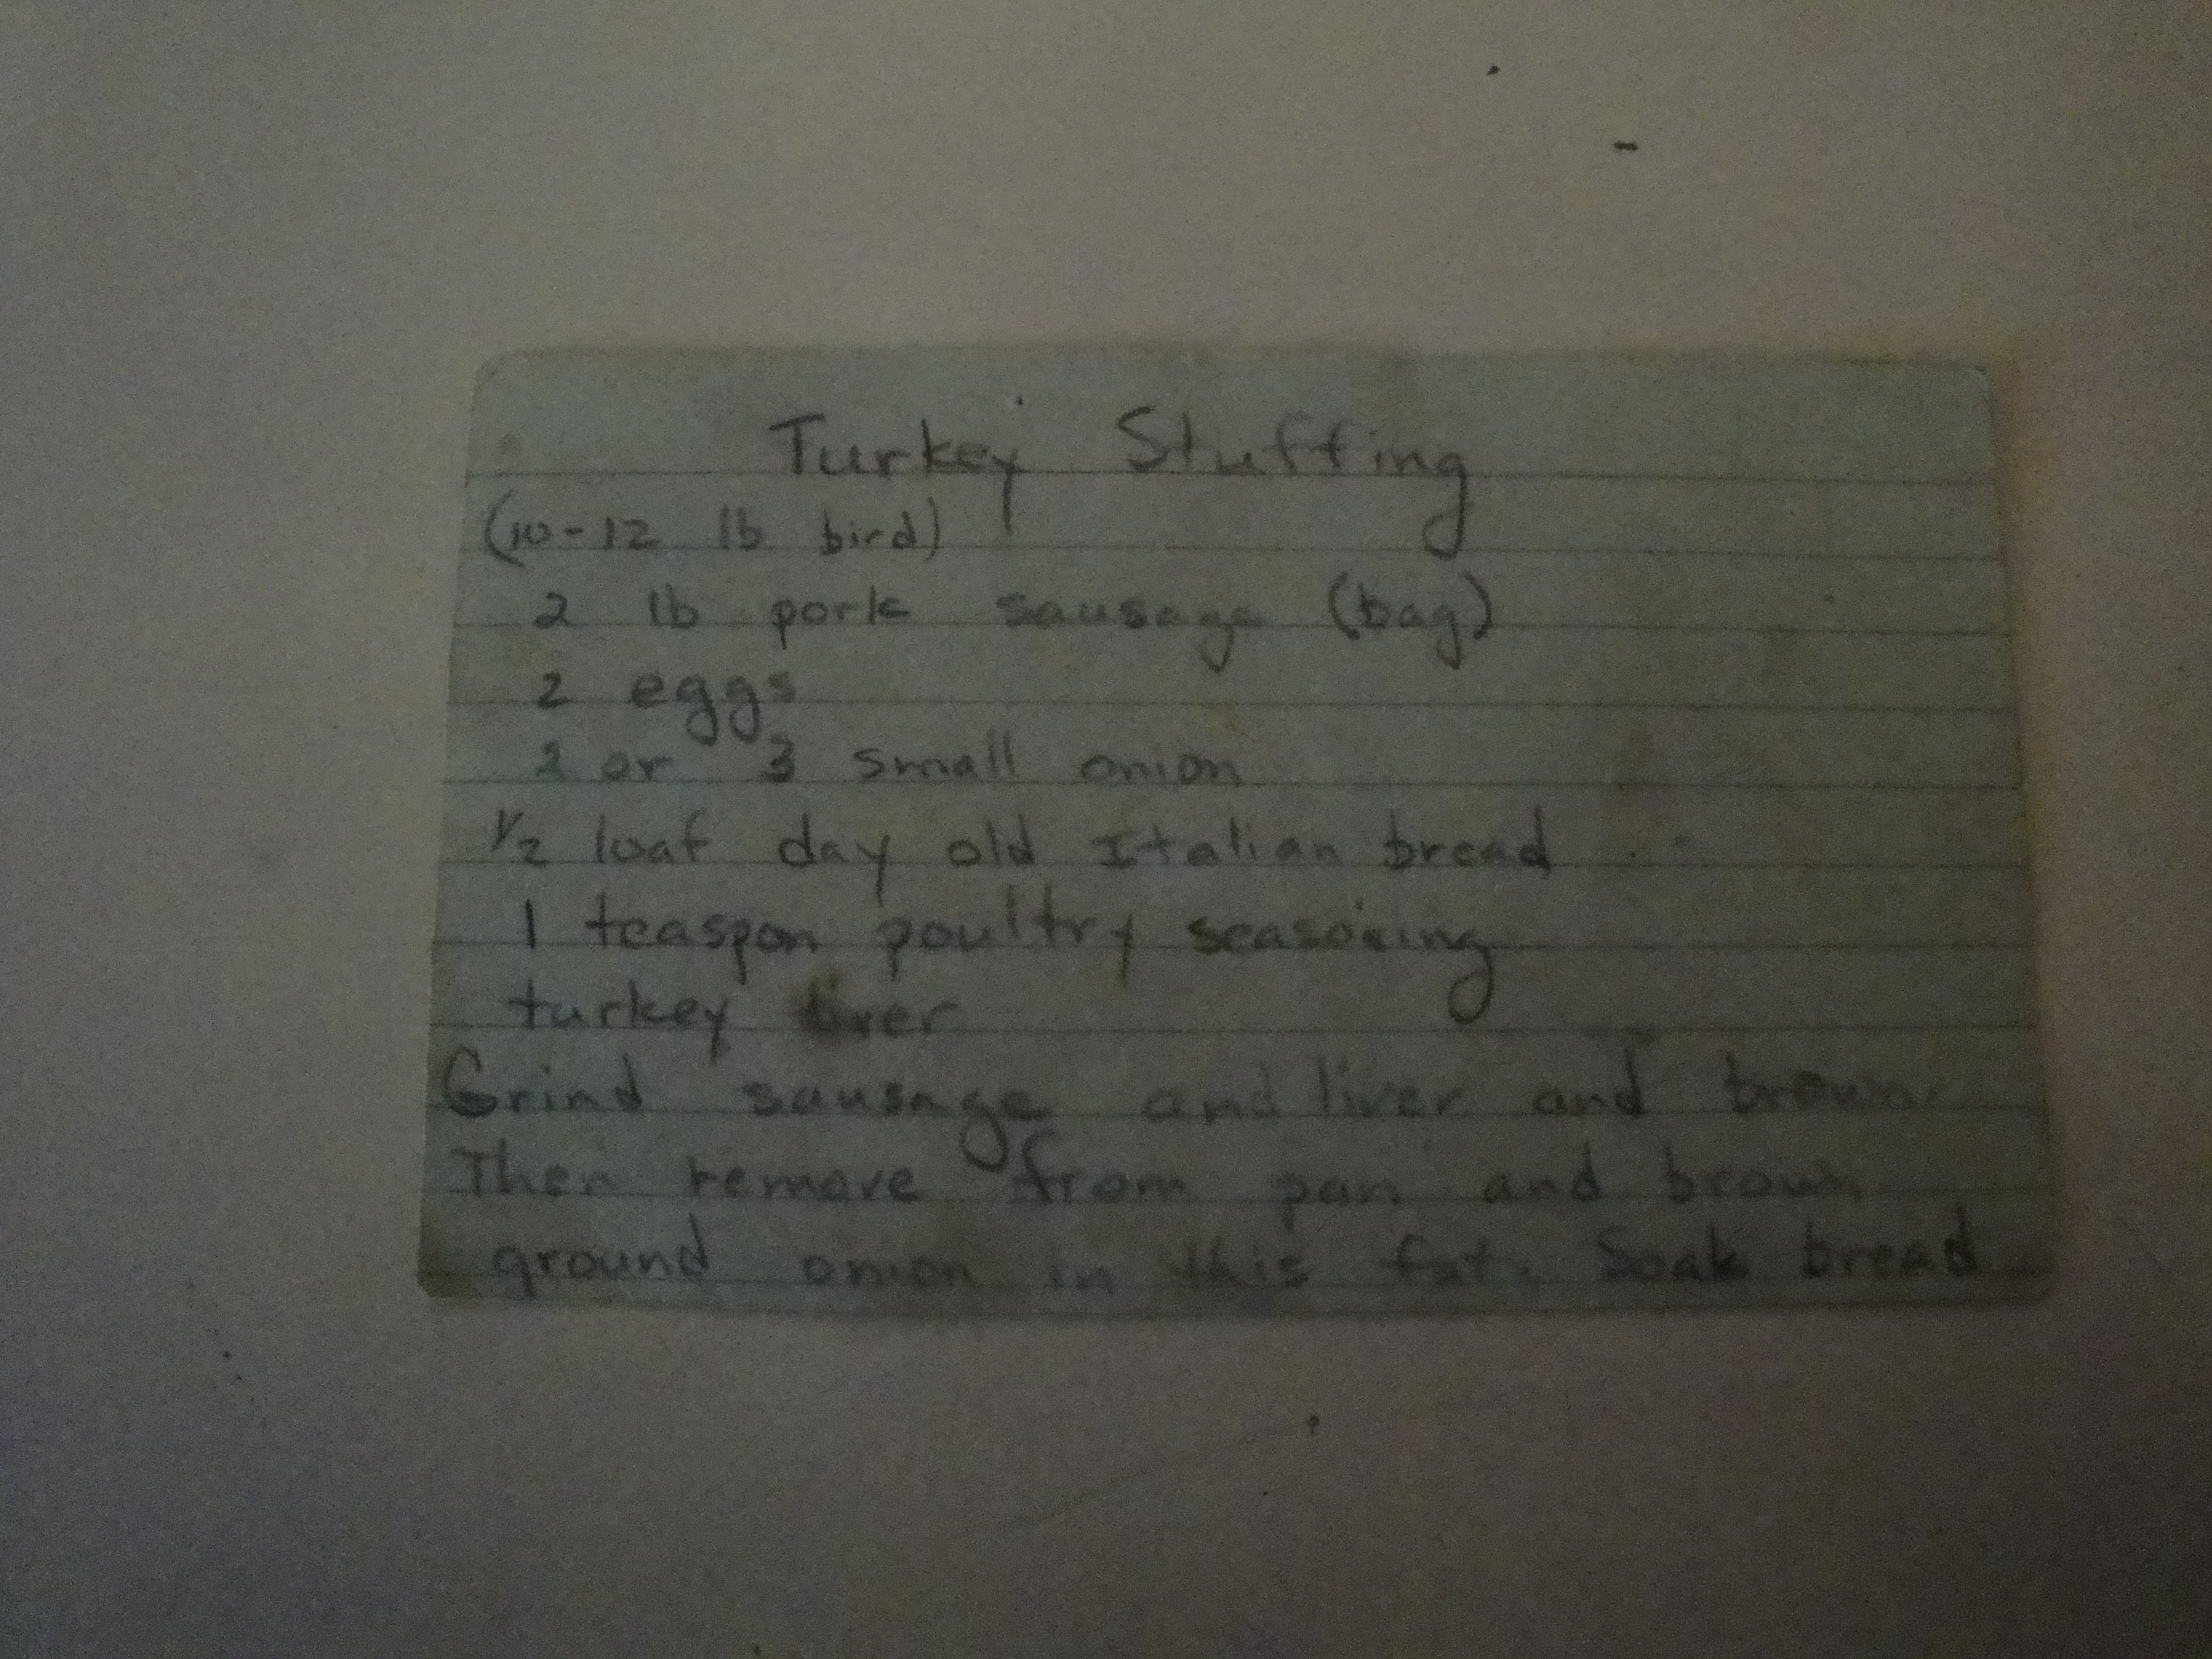 Turkey Stuffing
(10-12 lb bird)
2 lb pork sausage (bag)
2 eggs
2 or 3 small onion
1/2 loaf day old Italian bread
1 teaspon poultry seasoning
turkey liver
Grind sausage and liver and brown.
Then remove from pan and brown
ground onion in this fat. Soak bread